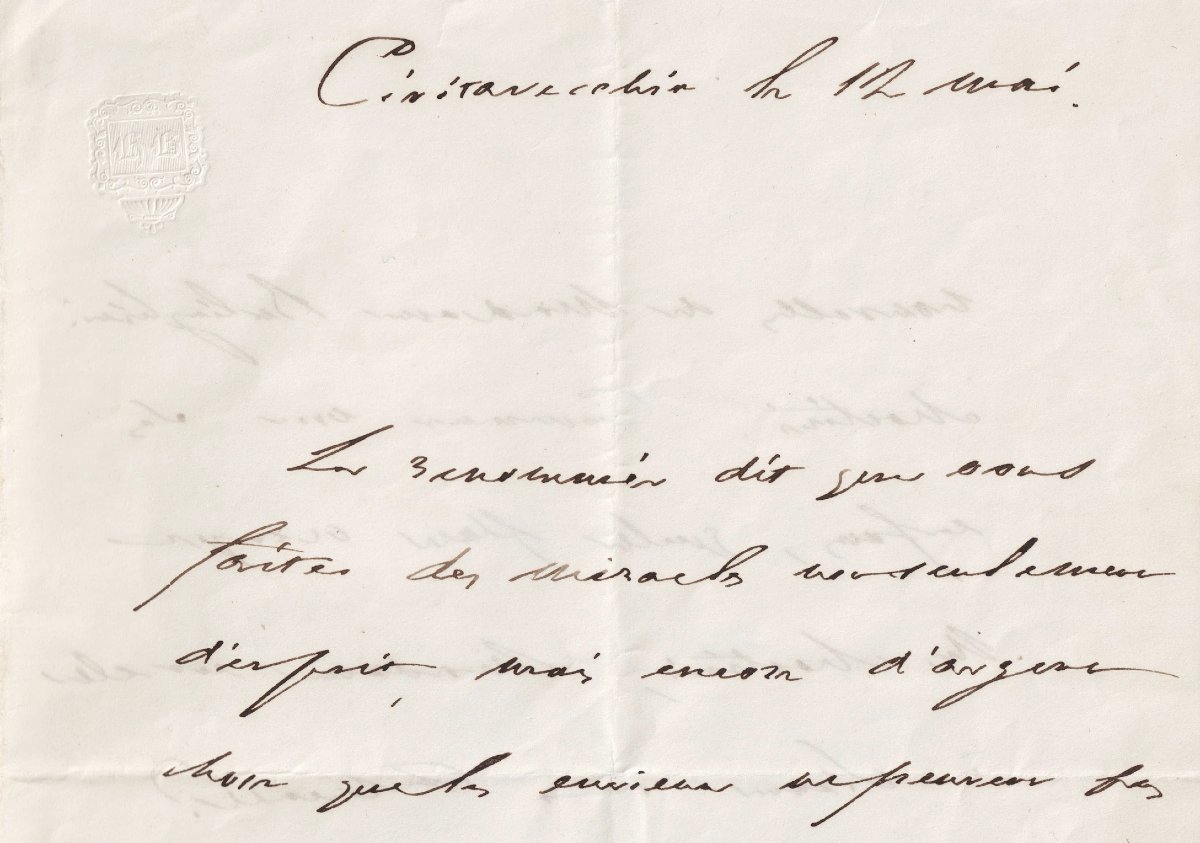 Civitavecchia le 12 mai.
La renommée dit que vous
faites des miracles nonseulement
d'esprit, mais encore d'argent
chose que les envieux ne peuvent pas